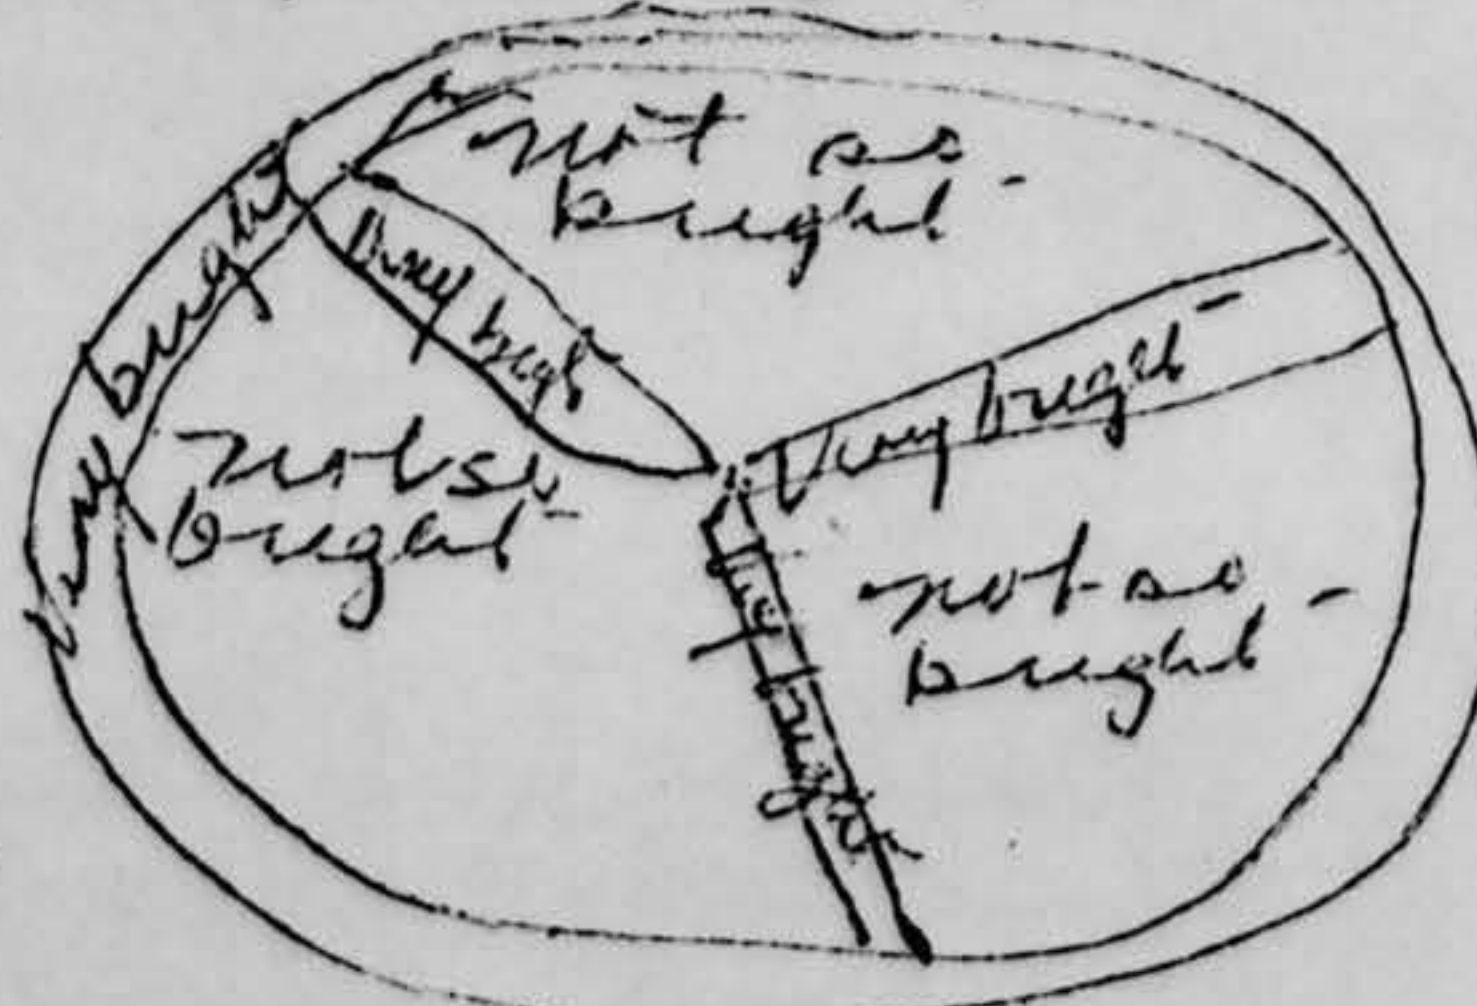 not so
bright
Very bright
Very bright
Very bright
not so
bright
not so
bright
Very bright